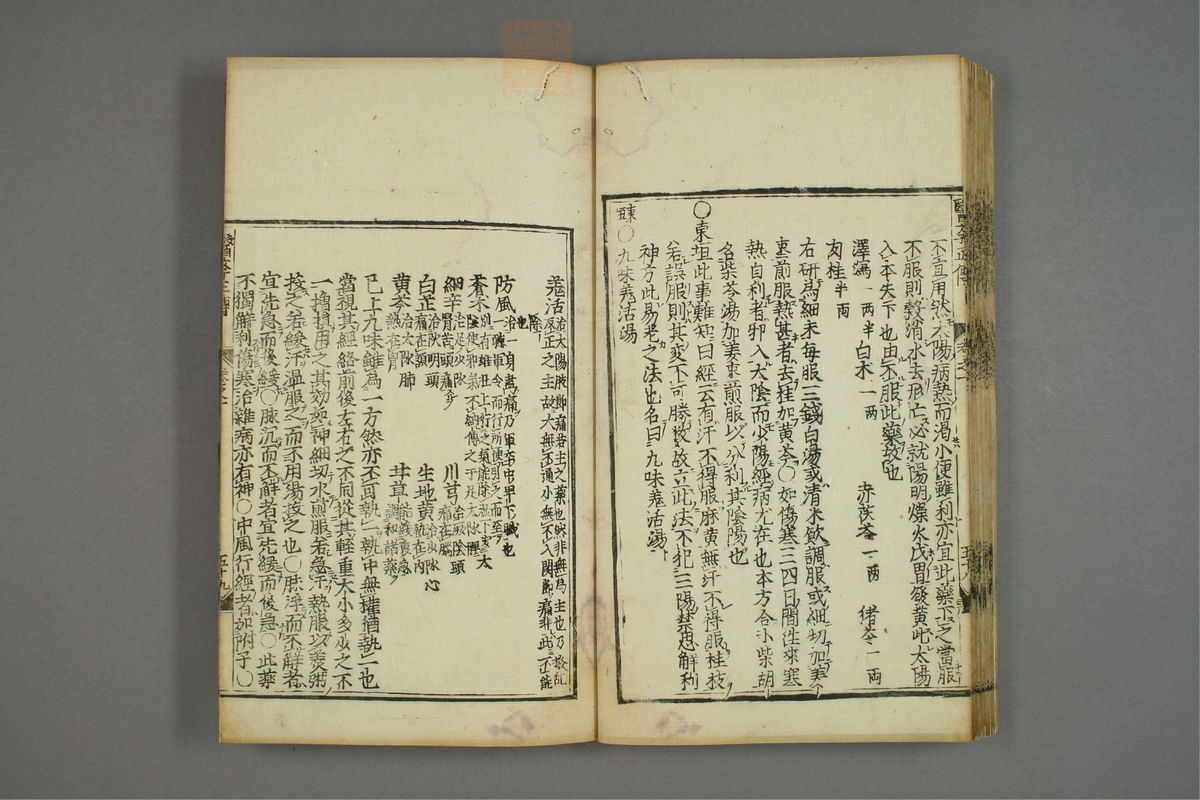 不宜用然太陽病熱而渴小便雖利亦宜此藥下之當服
不服則穀消水去形亡必就陽明燥火戊胃發黃此太陽
入本失下也由不服此藥故也
澤瀉一兩半白朮一兩 赤茯苓一兩 猪苓一兩
肉桂半兩
右研爲細末每服三錢白湯或清米飲調服或細切加姜
棗前服熱甚者去桂加黃芩〇如傷寒三四日間往來寒
熱自利者邪入大陰而少陽經病尤在也本方合小柴胡
名柴苓湯加姜棗煎服以分利其陰陽也
〇東垣此事難知曰經云有汗不得服麻黃無汗不得服桂枝
若誤服則其變不可勝救故立此法不犯三陽禁忌解利
神方此易老之法也名曰九味羗活湯
東垣〇九味羗活湯
羗活治太陽肢節痛君主之藥也然非無爲主也乃撥亂反正之主故大無不通小無不入關節痛非此不能除也
防風治一身盡痛乃軍卒中卑下職也一聽軍令而行所使引之而至
蒼朮別有雄壯上行之氣能除濕下安太陰使邪氣不納傳之于足太陰脾
細辛治足少陰腎苦頭痛 川芎治厥陰頭痛在腦
白芷治陽明頭痛在額 生地黃治少陰心熱在內
黃芩治太陰肺熱在胸 甘草能緩裏急調和諸藥
已上九味雖爲一方然亦不可執一執中無權猶執一也
當視其經絡前後左右之不同從其輕重大小多少之不
一增損用之其効如神細切水煎服若急汗熱服以羹粥
投之若緩汗溫服之而不用湯投之也〇脉浮而不解者
宜先急而後緩〇脉沉而不解者宜先緩而後急〇此藥
不獨解利傷寒治雜病亦有神〇中風行經者加附子〇
五十九